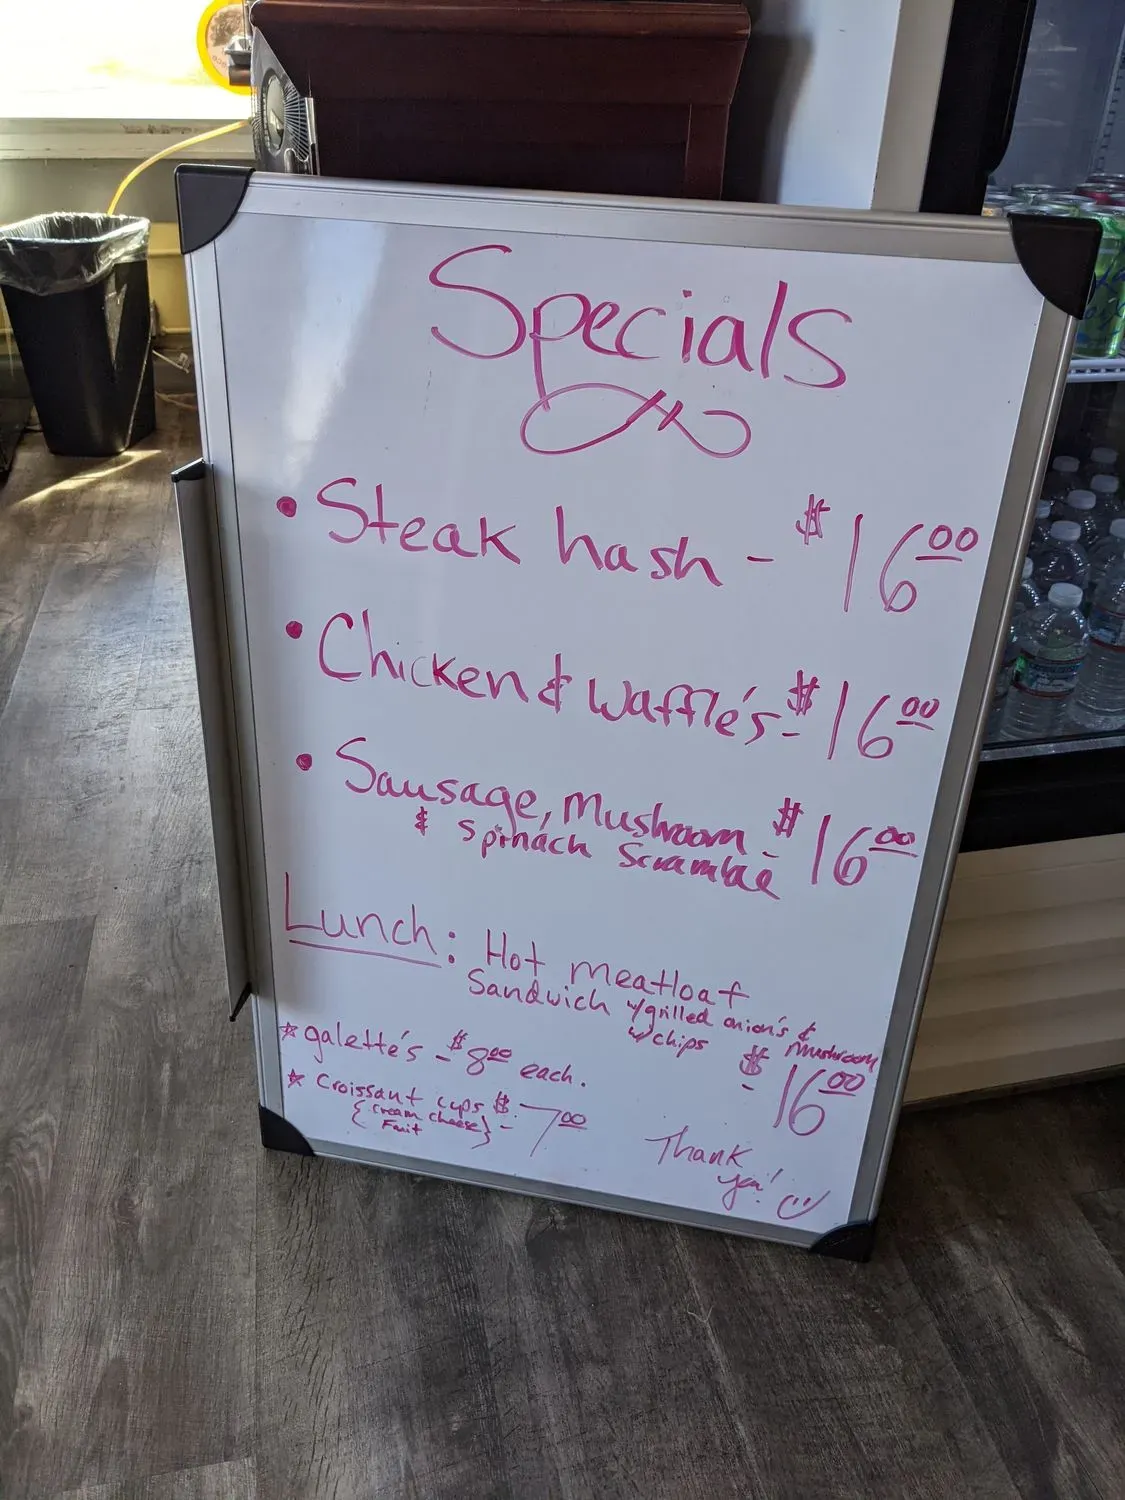 Specials
• Steak hash - $16.00
• Chicken & Waffle's - $16.00
• Sausage, Mushroom - $16.00
& Spinach Scramble
Lunch: Hot meatloaf
Sandwich w/grilled onion's &
w/chips Mushroom
- $16.00
☆ galette's - $8.00 each.
☆ Croissant cups $ - 7.00
{cream cheese}
Fruit
Thank
you!